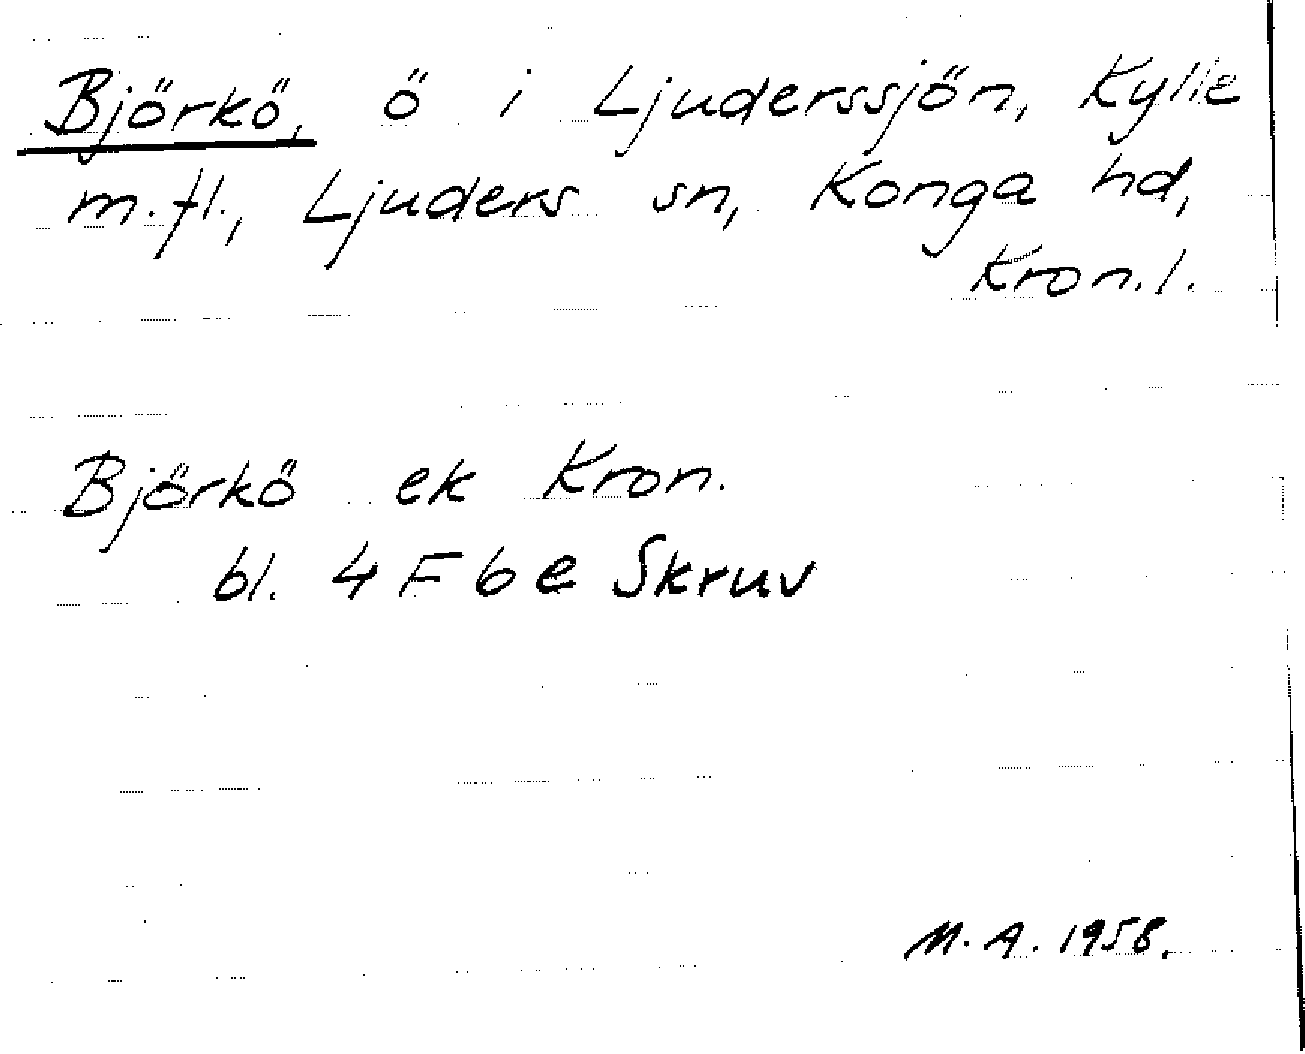 Björkö, ö i Ljuderssjön, Kylle
m.fl., Ljuders sn, Konga hd,
Kron.l.
Björkö ek Kron.
bl. 4 F 6 e Skruv
M. A. 1958.